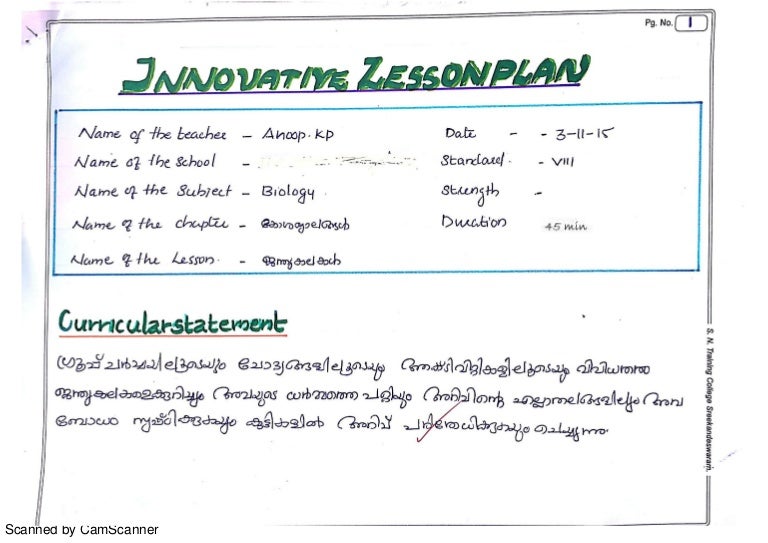 Pg. No. 1
INNOVATIVE LESSONPLAN
Name of the teacher - Anoop. KP
Date - - 3-11-15
Name of the School -
Standard. - VIII
Name of the Subject - Biology.
Strength -
Name of the chapter - കോശജാലങ്ങൾ
Duration 45 min
Name of the Lesson. - ജന്തുകലകൾ
Curricularstatement
ഗ്രൂപ്പ് ചർച്ചയിലൂടെയും ചോദ്യങ്ങളിലൂടെയും ആക്ടിവിറ്റികളിലൂടെയും വിവിധതരം
ജന്തുകലകളെക്കുറിച്ചും അവയുടെ ധർമ്മത്തെ പറ്റിയും അറിവിന്റെ എല്ലാതലങ്ങളിലും അവ
ബോധം സൃഷ്ടിക്കുകയും കുട്ടികളിൽ അറിവ് പരിശോധിക്കുകയും ചെയ്യുന്നു.
S. N. Training College Sreekandeswaram.
Scanned by CamScanner